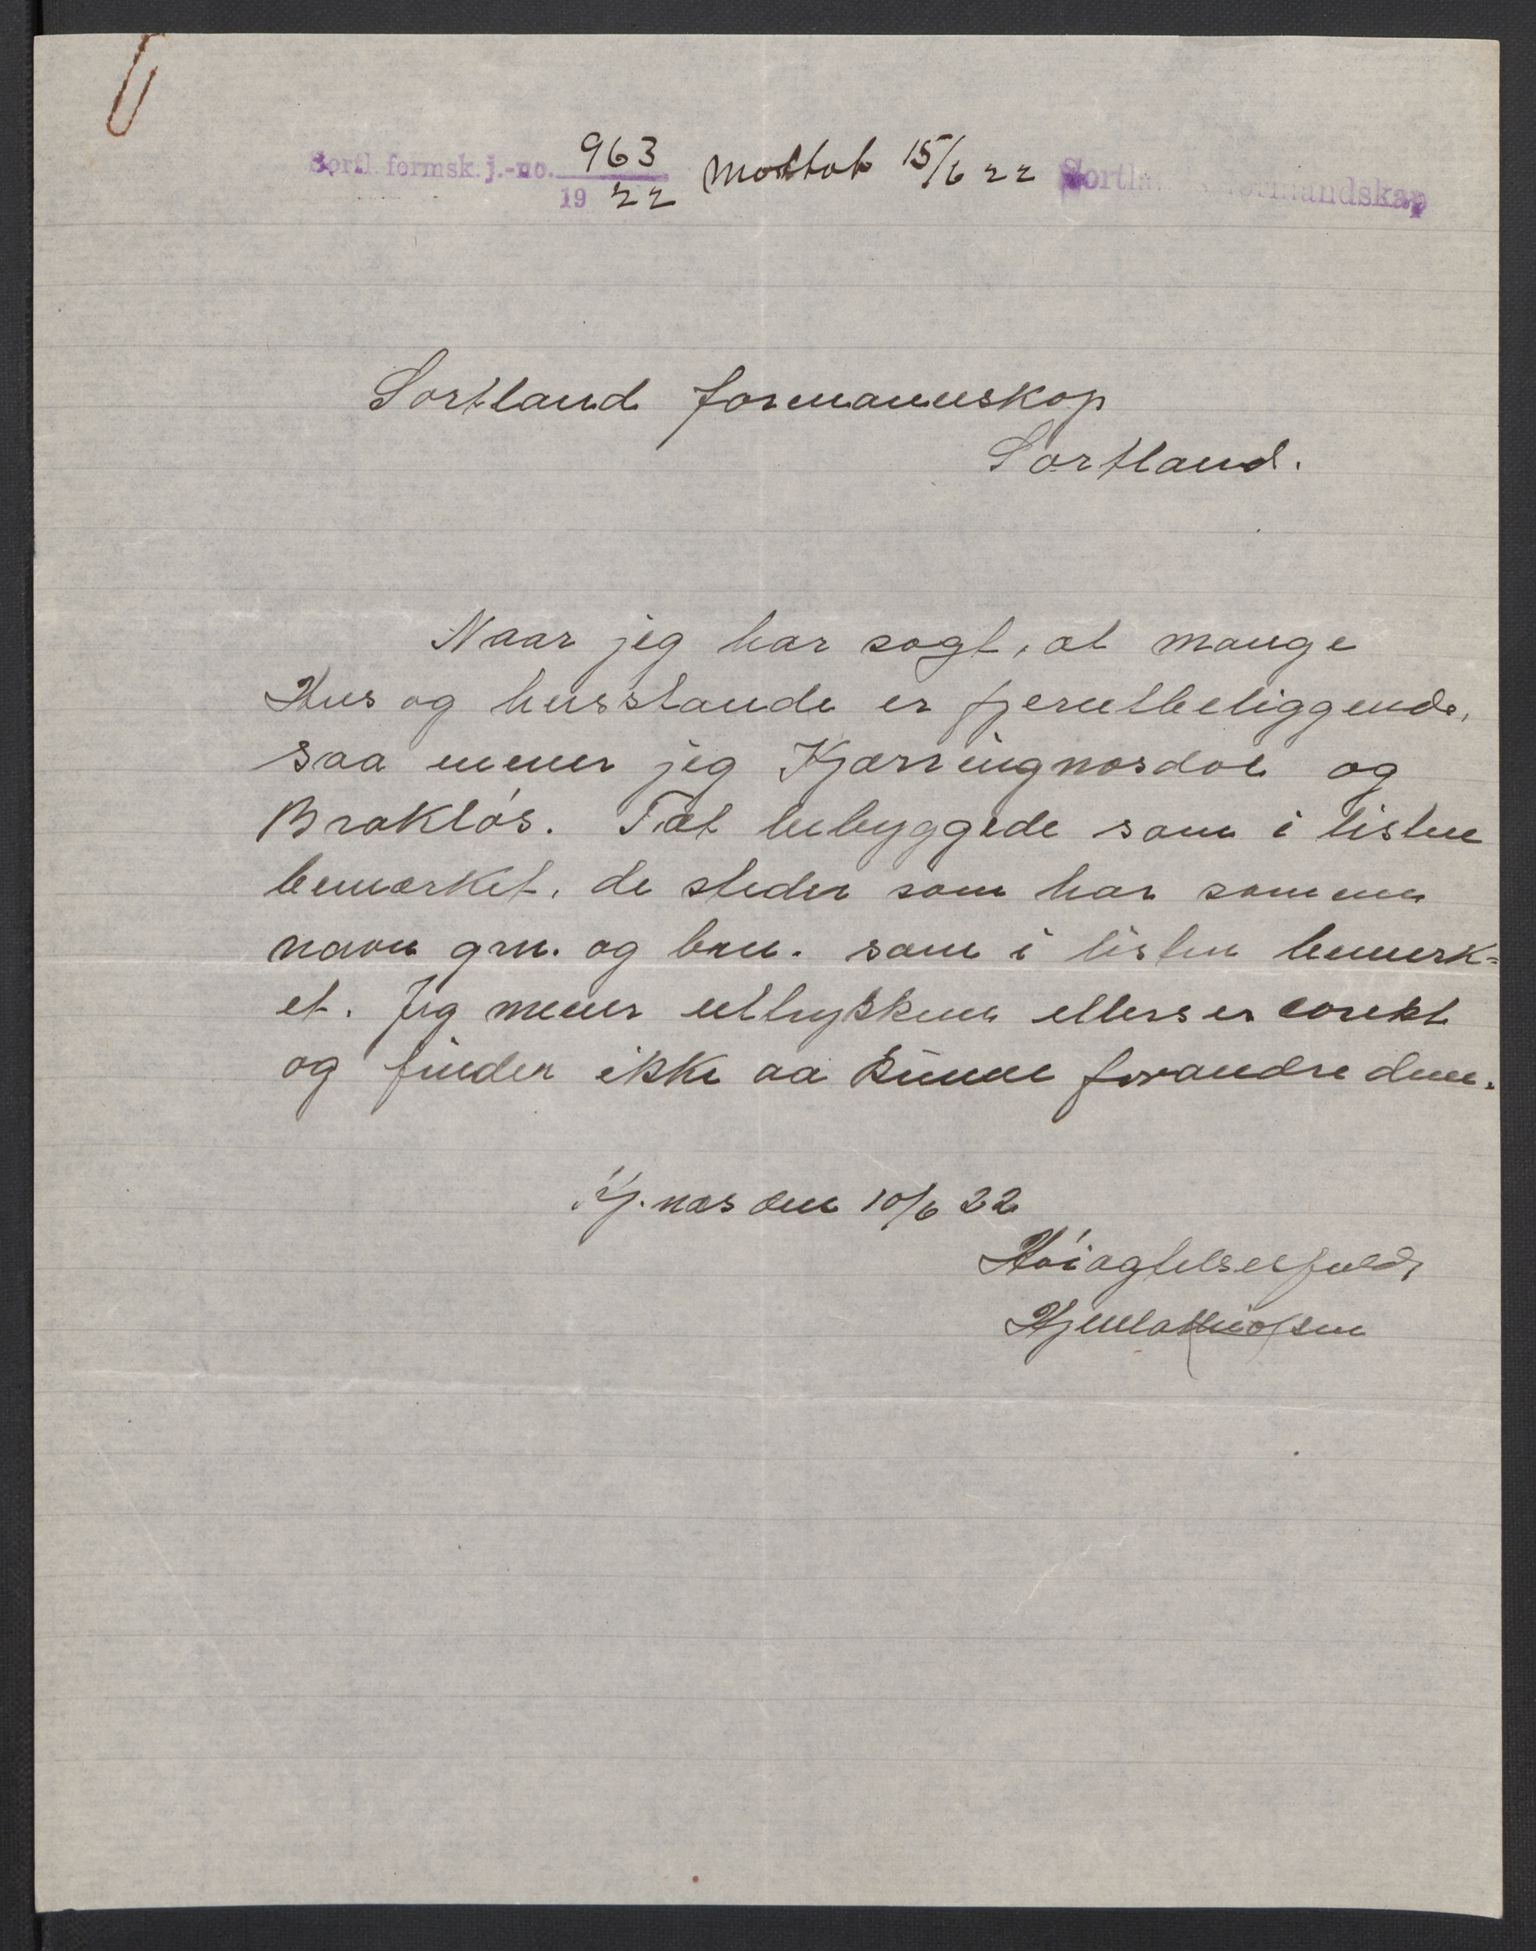 Sortl. formsk. j.-no. 963 Mottat 15/6 22 Sortland formandskap
19 22
Sortland formannskap
Sortland.
Naar jeg har sagt, at mange
Hus og husstande er fjerntbeliggende,
saa mener jeg Kjærringnesdal og
Brokløs. Tæt bebyggede som i listen
bemærket, de steder som har samme
navn grn. og brn. som i listen bemerk=
et. Jeg mener uttrykkene ellers er corekt
og finder ikke aa kunne forandre dem.
Kj.nes den 10/6 22
Høiagtelsesfuld,